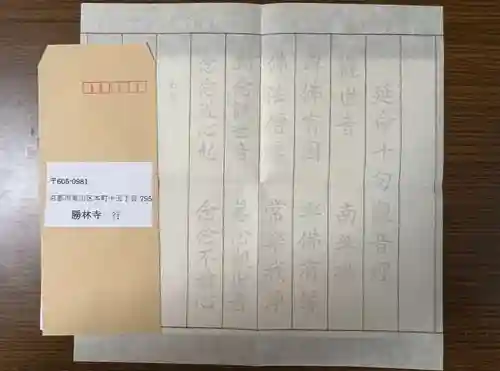 〒605-0981
京都市東山区本町十五丁目 795
勝林寺 行
延命十句観音経
観世音 南無佛
與佛有因 與佛有縁
佛法僧縁 常樂我淨
朝念観世音 暮念観世音
念念從心起 念念不離心